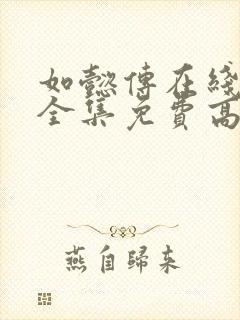 如懿傅在綫
全集免費高
燕自歸來